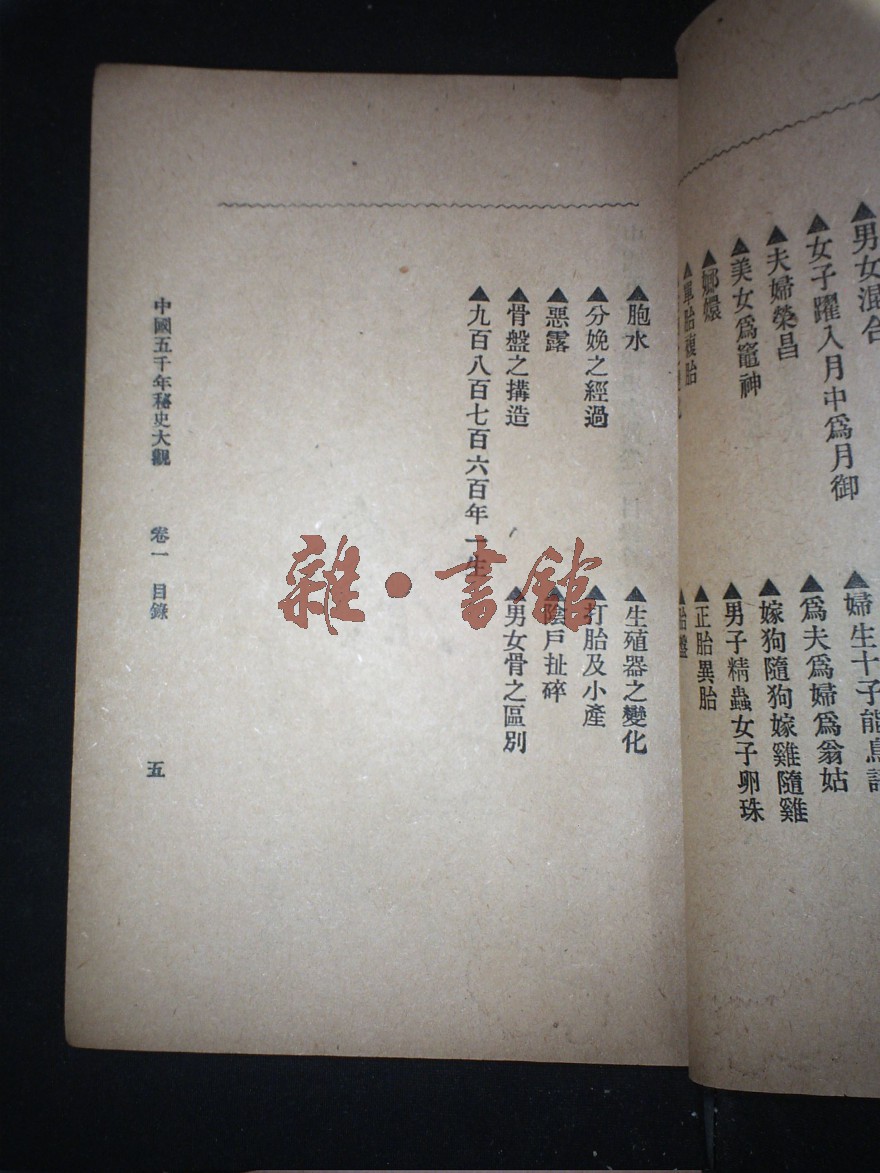 ▲男女混合　▲婦生十子能鳥
▲女子躍入月中爲月御　▲爲夫爲婦爲翁姑
▲夫婦榮昌　▲嫁狗隨狗嫁雞隨雞
▲美女爲竈神　▲男子精蟲女子卵珠
▲嫏嬛　▲正胎異胎
▲單胎複胎　▲胎盤
▲胞水　▲生殖器之變化
▲分娩之經過　▲打胎及小產
▲惡露　▲陰戶扯碎
▲骨盤之搆造　▲男女骨之區別
▲九百八百七百六百年一生
中國五千年秘史大觀　卷一　目錄　五
雜·書館